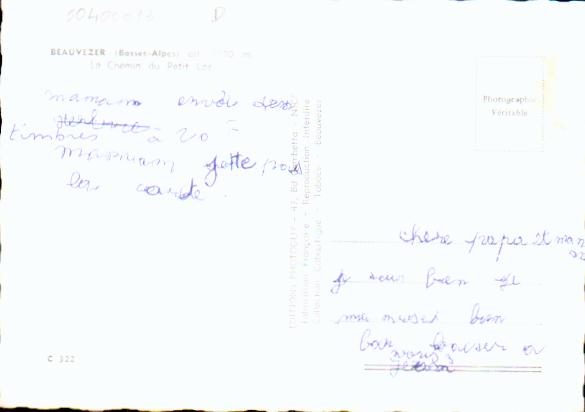 10400013 D
BEAUVEZER (Basses-Alpes) alt. 1150 m
Le Chemin du Petit Lac
mamam envoie des
timbres à 20
mamam jette pas
la carte.
EDITIONS PHOTOGUY - 43, Bd Gorbella - NICE
Fabrication Française - Reproduction Interdite
Collection Caléustique - Tabacs - Beauvezer
Photographie
Véritable
chere papa et maman
je suis bien je
me muser bien
bon baiser a
vous
C 322